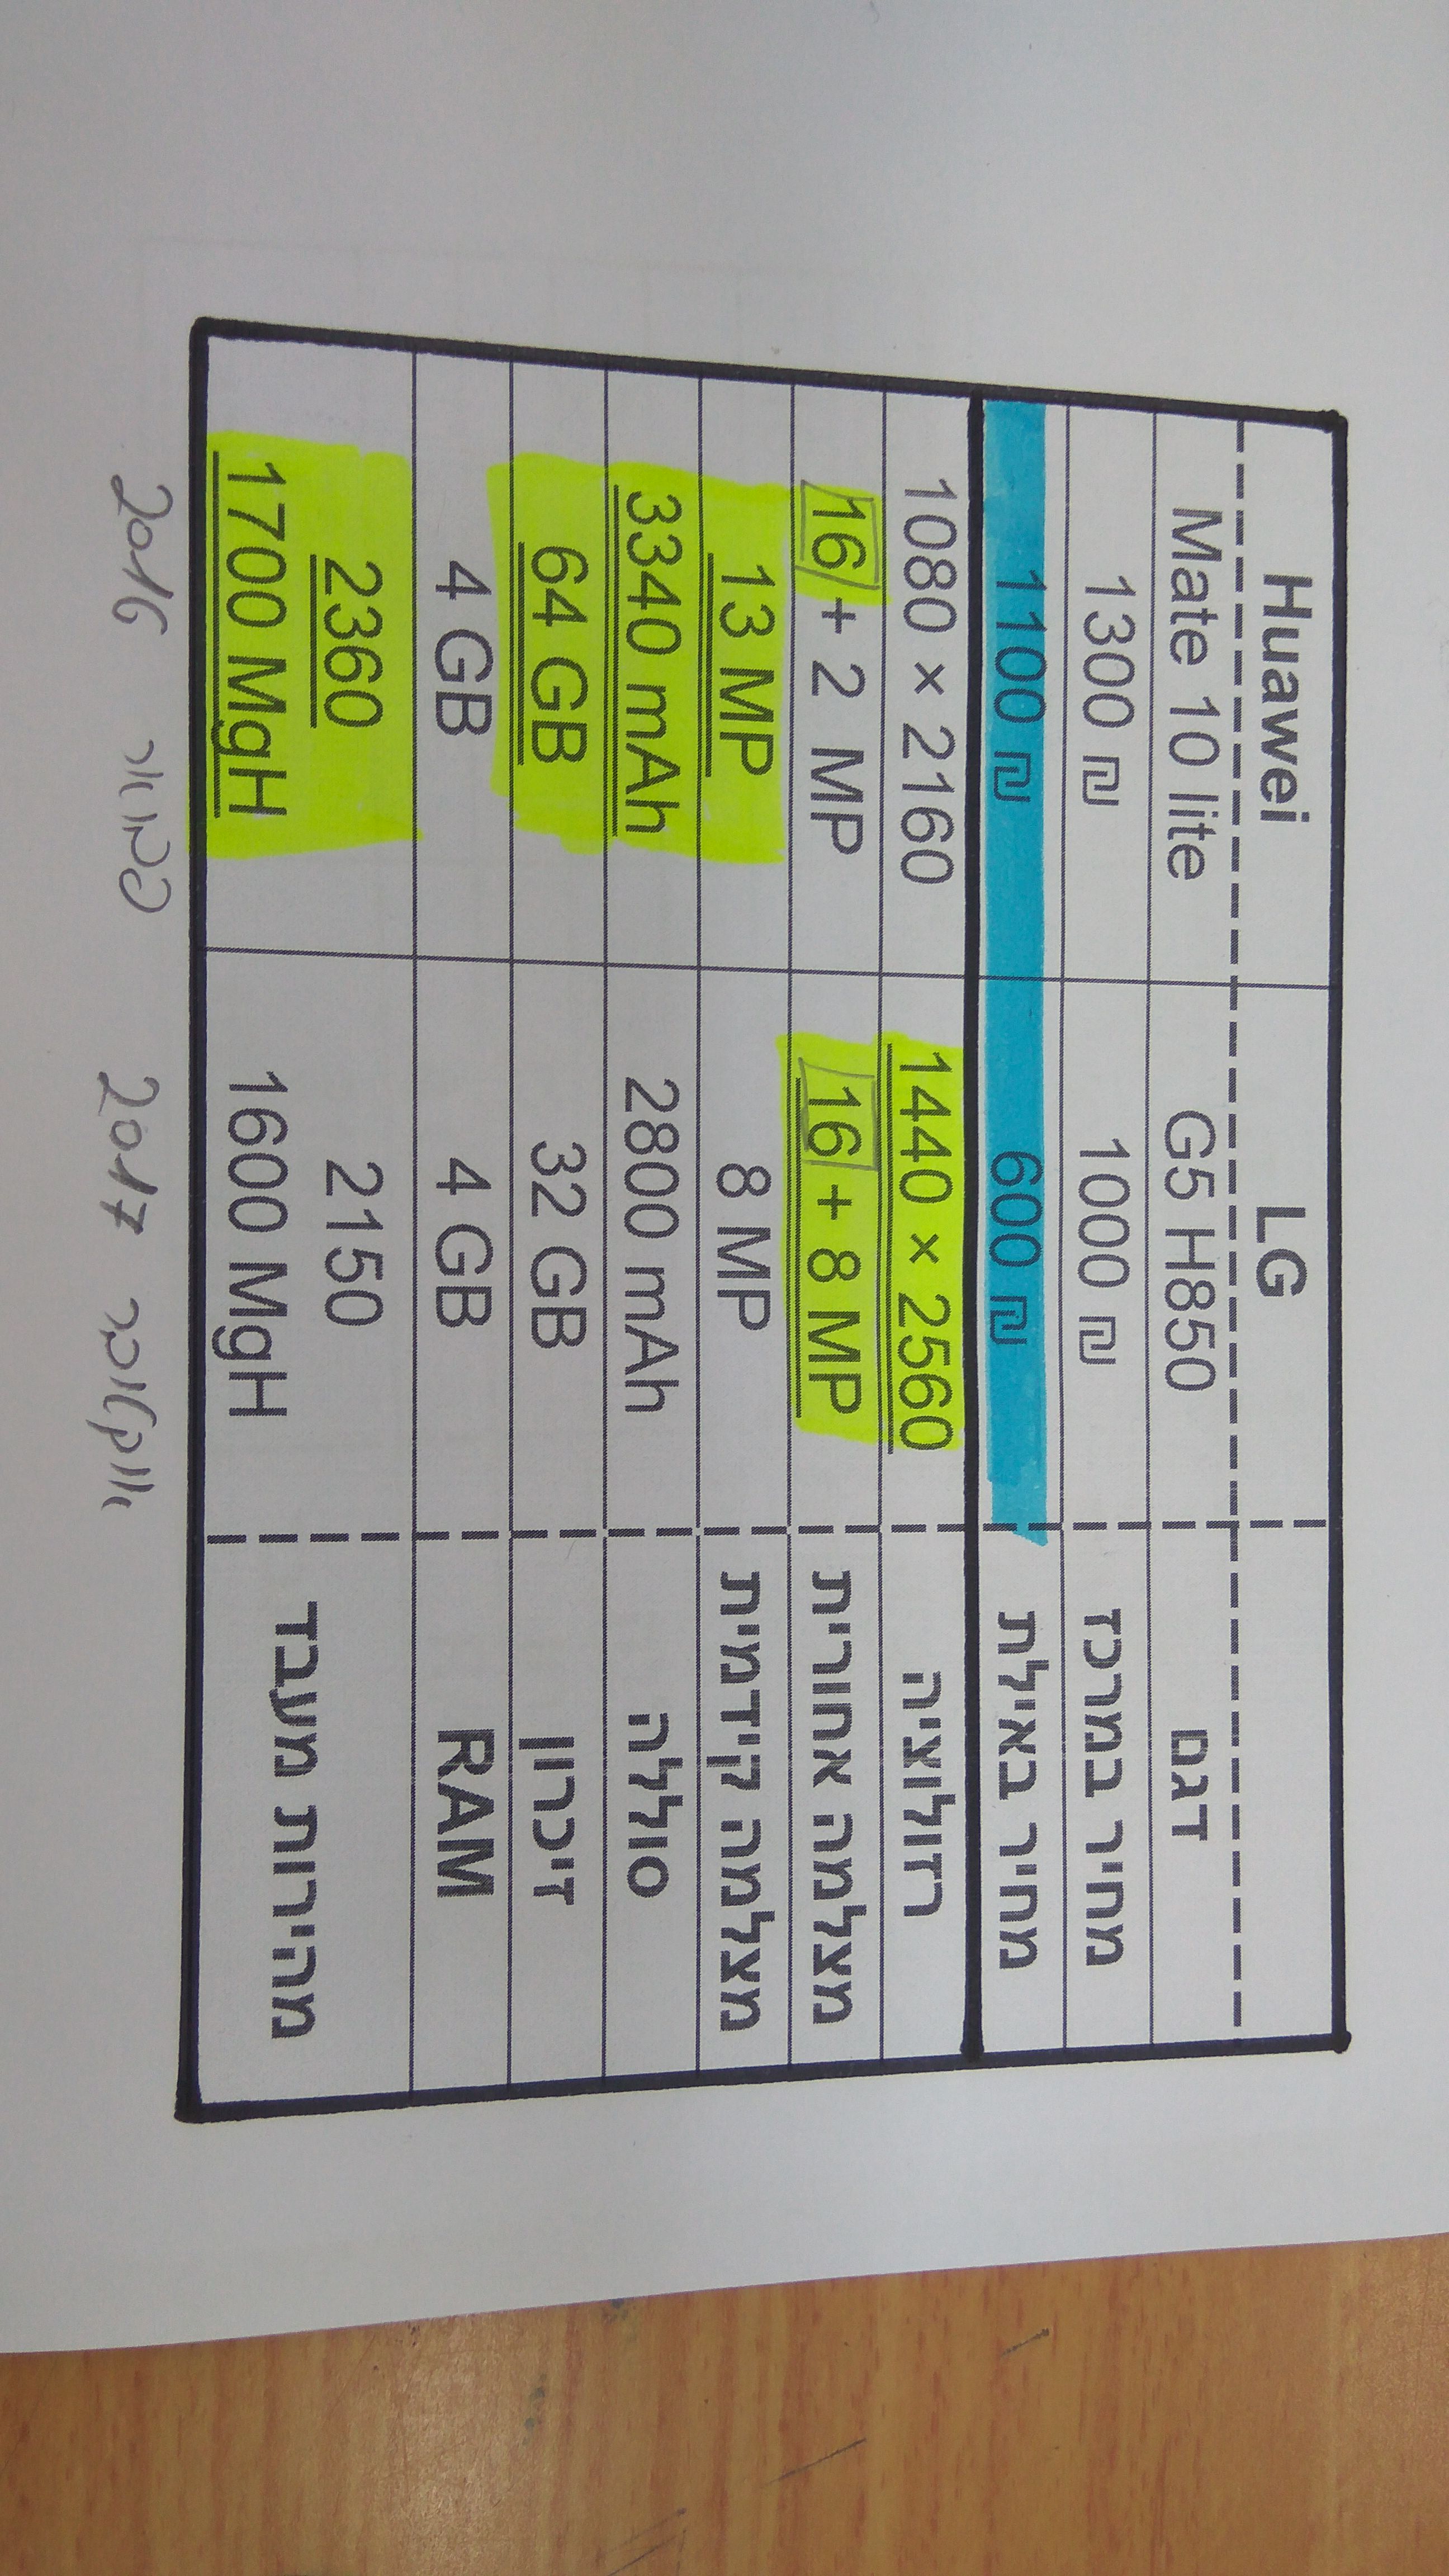 LG Huawei
דגם G5 H850 Mate 10 lite
מחיר במרכז 1000 ₪ 1300 ₪
מחיר באילת 600 ₪ 1100 ₪
רזולוציה 1440 × 2560 1080 × 2160
מצלמה אחורית 16 + 8 MP 16 + 2 MP
מצלמה קידמית 8 MP 13 MP
סוללה 2800 mAh 3340 mAh
זיכרון 32 GB 64 GB
RAM 4 GB 4 GB
מהירות מעבד 2150 2360
1600 MgH 1700 MgH
אוקטובר 2017 פברואר 2016